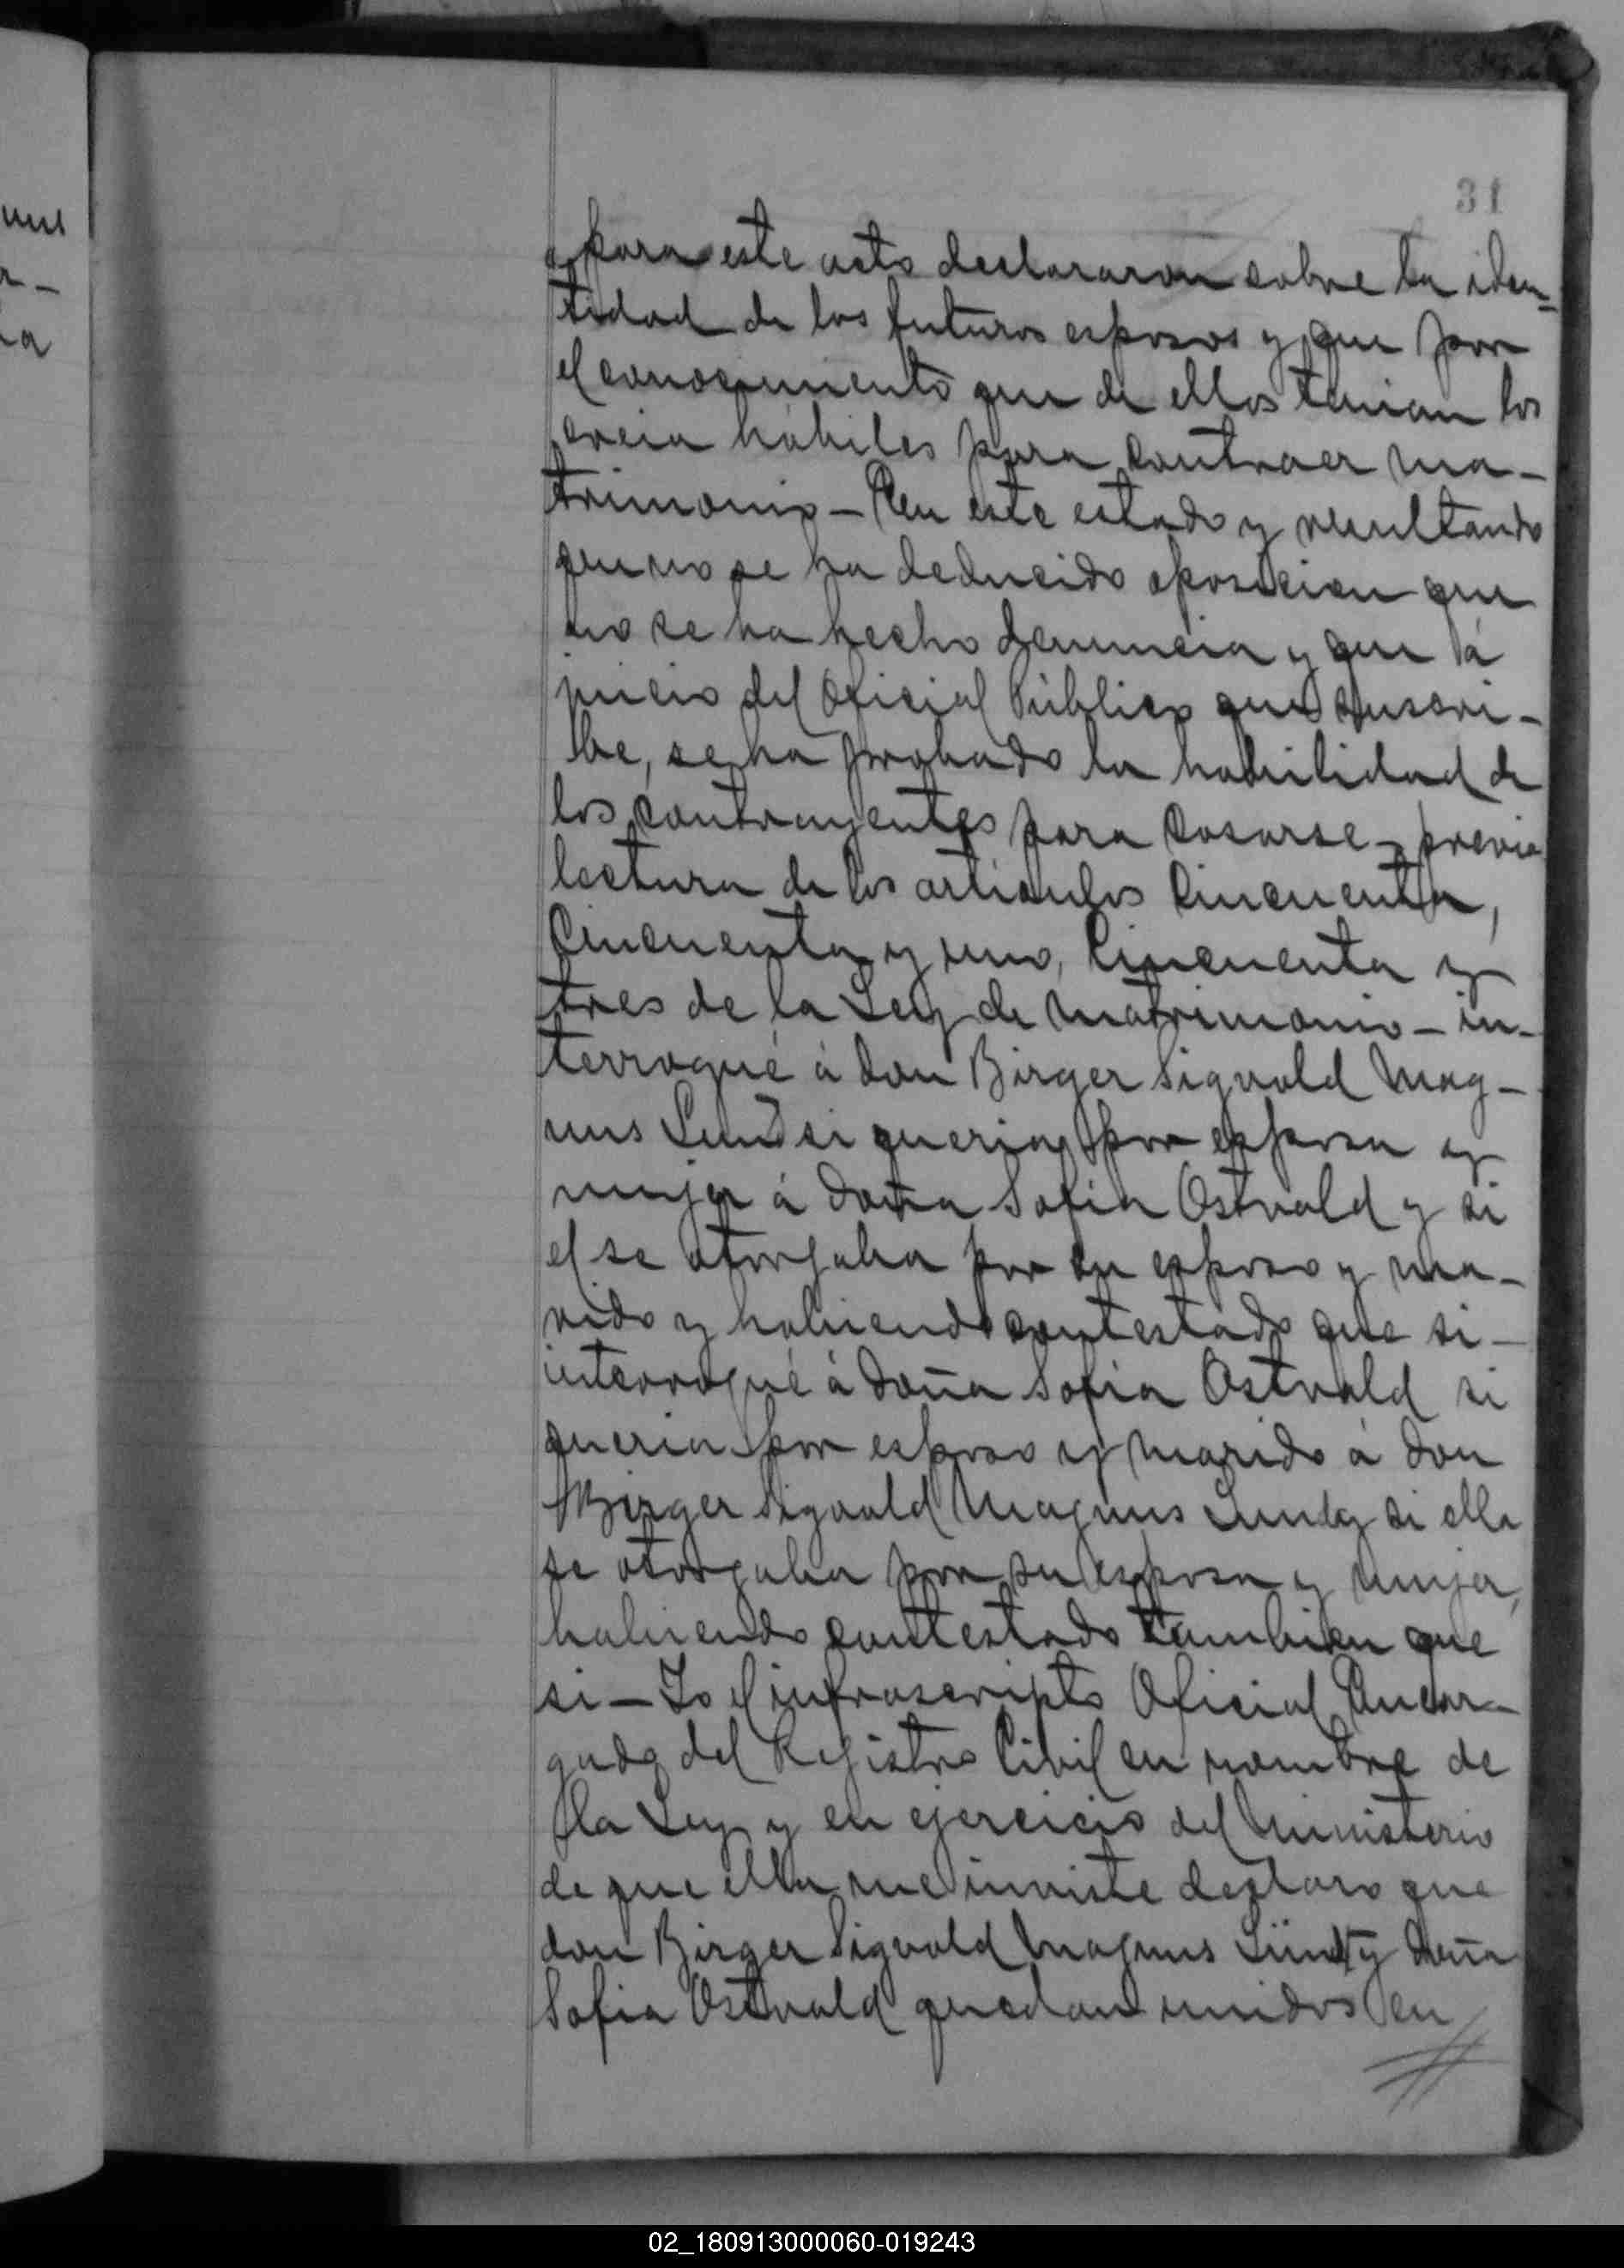 mus
r-
la
31
para este acto declararon sobre la iden=
tidad de los futuros esposos y que por
el conocimiento que de ellos tenian los
creia hábiles para contraer ma-
trimonio - En este estado y resultando
que no se ha deducido oposicion que
no se ha hecho denuncia y que á
juicio del Oficial Público que suscri-
be, se ha probado la habilidad de
los contrayentes para casarse - previa
lectura de los artículos Cincuenta,
Cincuenta y uno, Cincuenta y
tres de la Ley de Matrimonio - in-
terrogué á don Birger Sigvald Mag-
nus Lund si queria por esposa y
mujer á doña Sofia Ostvald y si
el se otorgaba por su esposo y ma-
rido y habiendo contestado que si -
interrogué á doña Sofia Ostvald si
queria por esposo y marido á don
Birger Sigvald Magnus Lund y si ella
se otorgaba por su esposa y mujer,
habiendo contestado tambien que
si - Yo el infrascripto Oficial Encar-
gado del Registro Civil en nombre de
la Ley y en ejercicio del Ministerio
de que ella me inviste declaro que
don Birger Sigvald Magnus Lünd y doña
Sofia Ostvald quedan unidos en
02_180913000060-019243